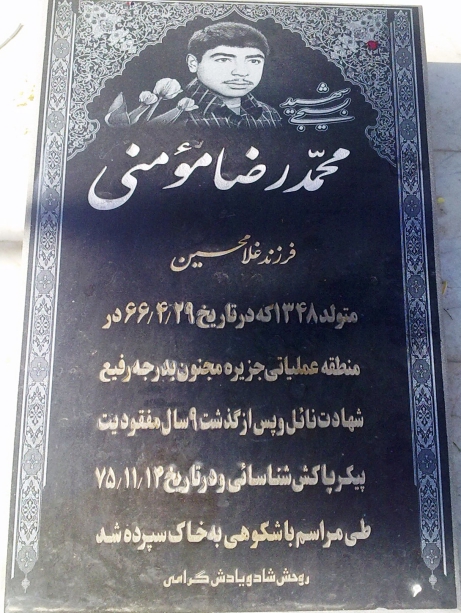 شهید
بسیجی
محمّدرضا مؤمنی
فرزند غلامحسین
متولد ۱۳۴۸ که در تاریخ ۶۶/۴/۲۹ در
منطقه عملیاتی جزیره مجنون بدرجه رفیع
شهادت نائل و پس از گذشت ۹ سال مفقودیت
پیکر پاکش شناسائی و در تاریخ ۷۵/۱۱/۱۲
طی مراسم باشکوهی به خاک سپرده شد
روحش شاد و یادش گرامی